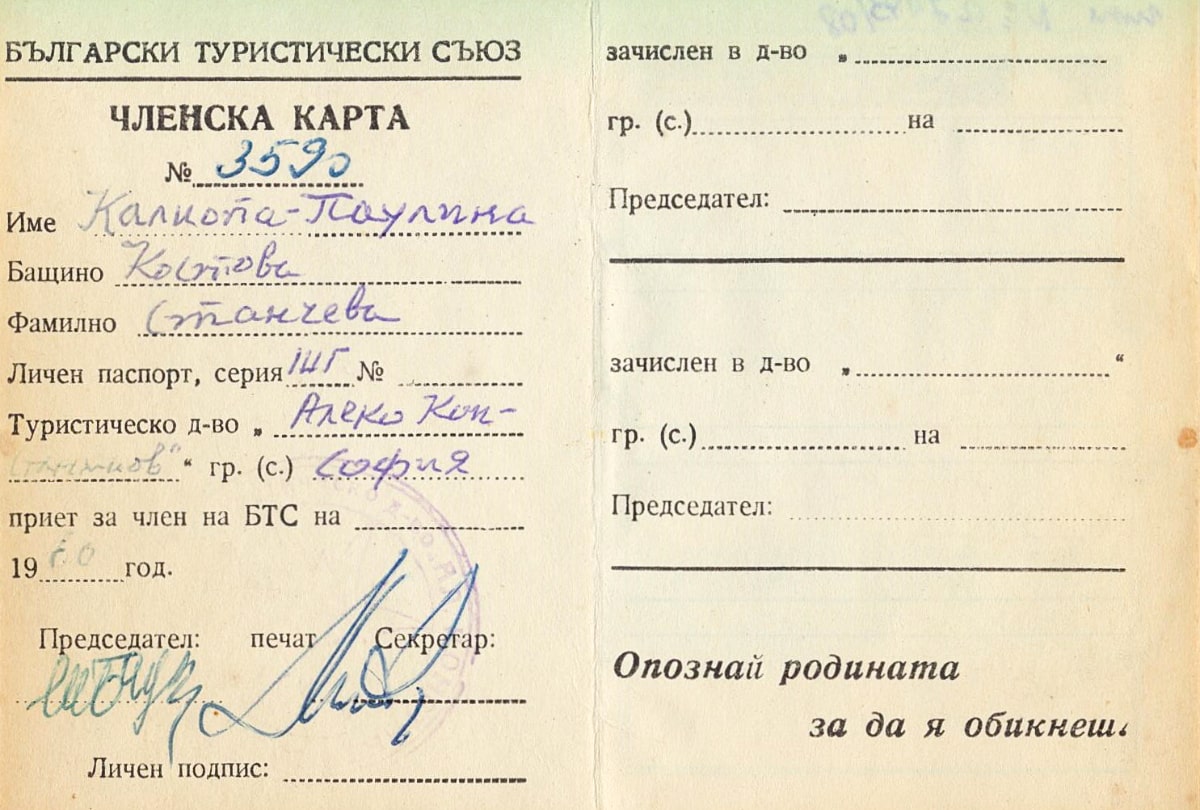 БЪЛГАРСКИ ТУРИСТИЧЕСКИ СЪЮЗ
ЧЛЕНСКА КАРТА
№ 3590
Име Калиопа-Паулина
Бащино Костова
Фамилно Станчева
Личен паспорт, серия №
Туристическо д-во „ Алеко Кон-
стантинов" “ гр. (с.) София
приет за член на БТС на
1960 год.
Председател: печат Секретар:
Личен подпис:
зачислен в д-во „
гр. (с.) на
Председател:
зачислен в д-во „ “
гр. (с.) на
Председател:
Опознай родината
за да я обикнеш.